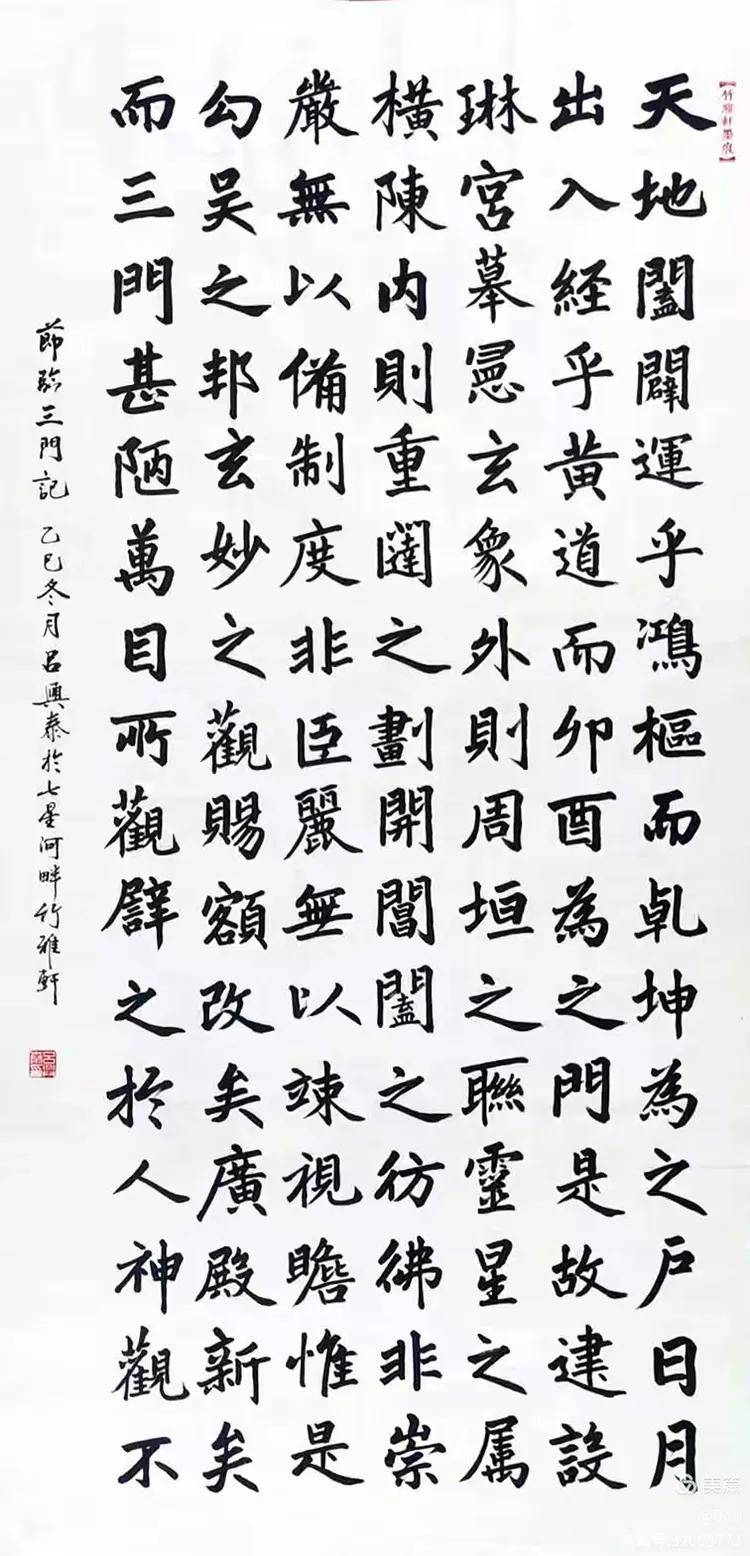 竹雅軒墨痕
天地闔闢運乎鴻樞而乹坤為之戶日月
出入經乎黄道而卯酉為之門是故建設
琳宮摹憲玄象外則周垣之聯靈星之属
橫陳内則重闥之劃開閶闔之彷彿非崇
嚴無以俻制度非臣麗無以竦視瞻惟是
勾吴之邦玄妙之觀賜額改矣廣殿新矣
而三門甚陋萬目所觀譬之於人神觀不
節臨三門記 乙巳冬月吕興泰於七星河畔竹雅軒
美篇